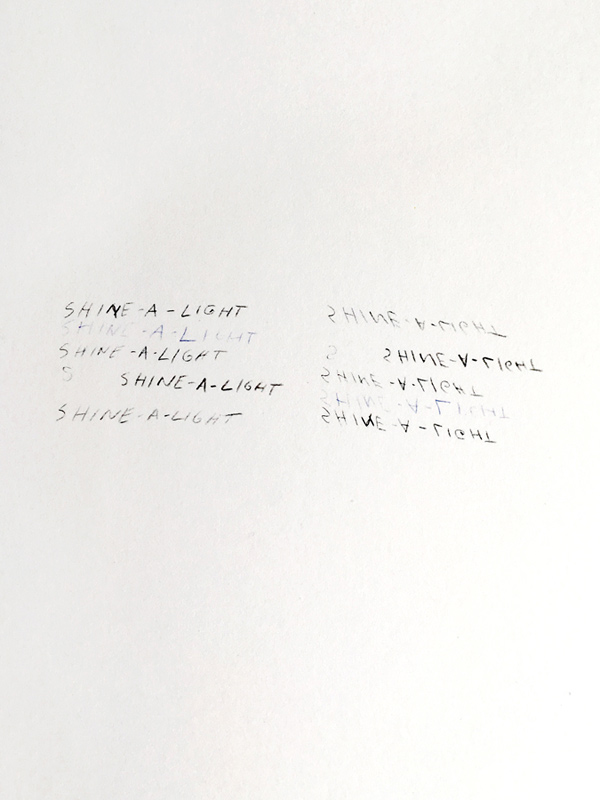 SHINE-A-LIGHT
SHINE-A-LIGHT
SHINE-A-LIGHT
S SHINE-A-LIGHT
SHINE-A-LIGHT
SHINE-A-LIGHT
S SHINE-A-LIGHT
SHINE-A-LIGHT
SHINE-A-LIGHT
SHINE-A-LIGHT